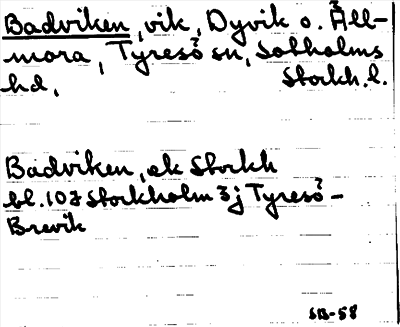 Badviken, vik, Dyvik o. Åll-
mora, Tyresö sn, Sotholms
hd, Stockh. l.
Badviken, ek Stockh
bl. 107 Stockholm 3j Tyresö-
Brevik
SB-58